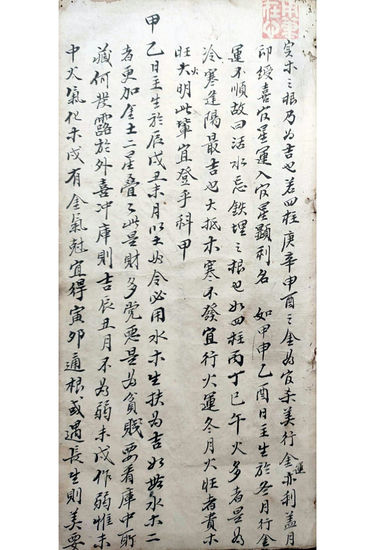 实木之根乃为吉也若四柱庚辛申酉之金为官杀美行金運亦利盖月
印绶喜官星運入官星顯利名 如甲申乙酉日主生於冬月行金
運不順故曰活水忌鉄埋之根也如四柱丙丁巳午火多者是为
冷寒逢陽最吉也大抵木寒不發宜行火運冬月火旺者貴木
旺火明此輩宜登乎科甲
甲乙日主生於辰戌丑未月以土为令必用水木生扶为吉如無水木二
者更加金土二星叠々此是財多党恶是为貧贱要看庫中所
藏何發露於外喜冲庫則吉辰丑月不为弱未戌作弱惟未
中火氣化木戌有金氣尅宜得寅卯通根或遇長生則美要